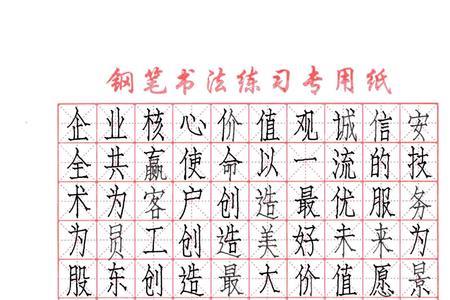 钢笔书法练习专用纸
企业核心价值观诚信安
全共赢使命以一流的技
术为客户创造最优服务
为员工创造美好未来为
股东创造最大价值愿景